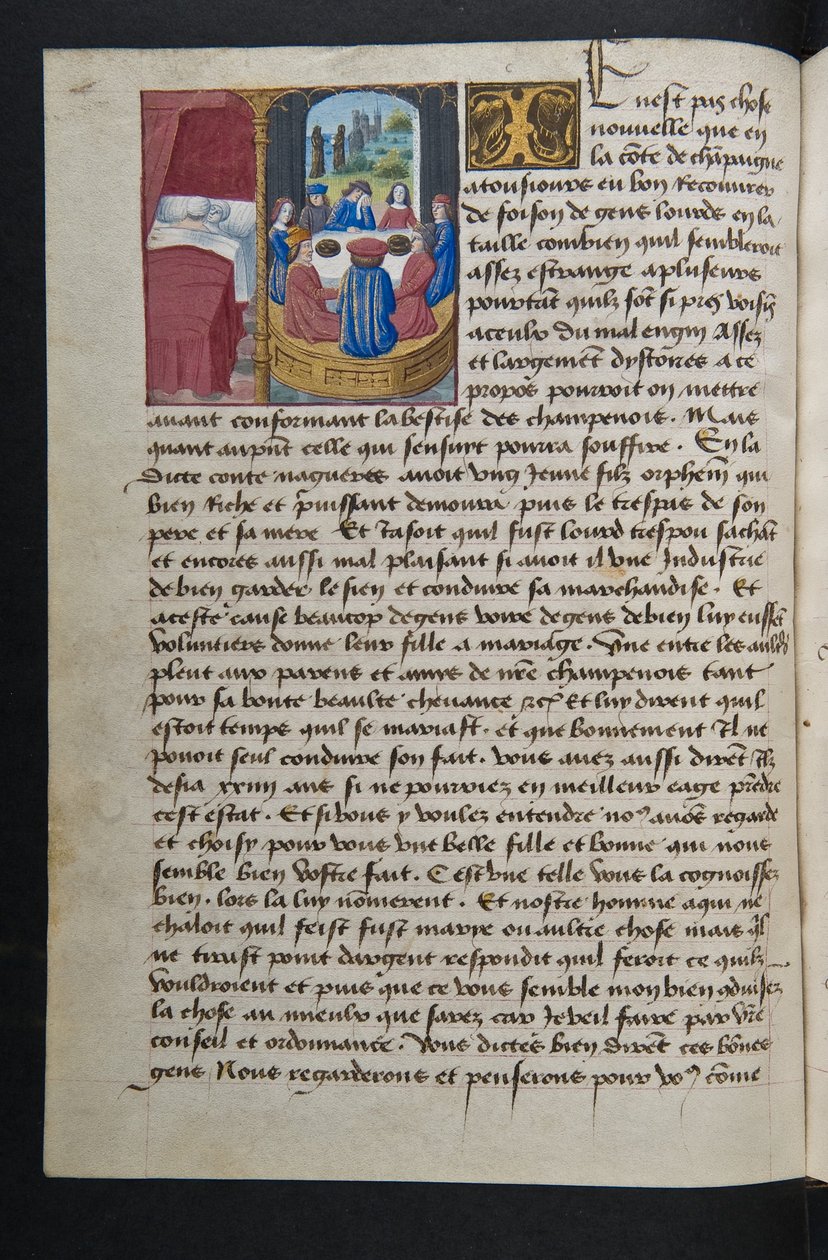 E nest pas chose
nouuelle que en
la cõte de chãpaigne
a tousiours eu bon Recouurer
de foison de gens lourds en la
taille combien quil sembleroit
assez estrange a pluseurs
pourtãt quilz sõt si pres voisĩs
a ceulx du mal engin Assez
et largemẽt dystoires a ce
propos pourroit on mettre
auant conformant la bestise des champenois. Mais
quant au pñt celle qui sensuyt pourra souffire. En la
dicte conte nagueres auoit vng Jeune filz orphenĩ qui
bien Riche et puissant demoura puis le trespas de son
pere et sa mere Et Jasoit quil fust lourd trespou sachãt
et encores aussi mal plaisant si auoit il vne Industrie
de bien garder le sien et conduire sa marchandise. Et
a ceste cause beaucop de gens voire de gens de bien luy eussẽt
voluntiers donne leur fille a mariage. Vne entre les aultrs
pleut aux parens et amys de nr̃e champenois tant
pour sa bonte beaulte cheuance &c̃ Et luy dirent quil
estoit temps quil se mariast. et que bonnement Il ne
pouoit seul conduire son fait. vous auez aussi dirẽt Ilz
desia xxiiij ans si ne pourriez en meilleur eage prẽdre
cest estat. Et si vous y voulez entendre noꝰ auõs regarde
et choisy pour vous vne belle fille et bonne qui nous
semble bien vostre fait. C est vne telle vous la cognoissez
bien. lors la luy nõmerent. Et nostre homme a qui ne
chaloit quil feist fust marye ou aultre chose mais q̃l
ne tirast point dargent respondit quil feroit ce quilz
vouldroient et puis que ce vous semble mon bien ꝯduisez
la chose au mieulx que sarez car Je veil faire par vr̃e
conseil et ordonnance. Vous dictes bien dirẽt ces bõnes
gens Nous regarderons et penserons pour voꝰ cõme